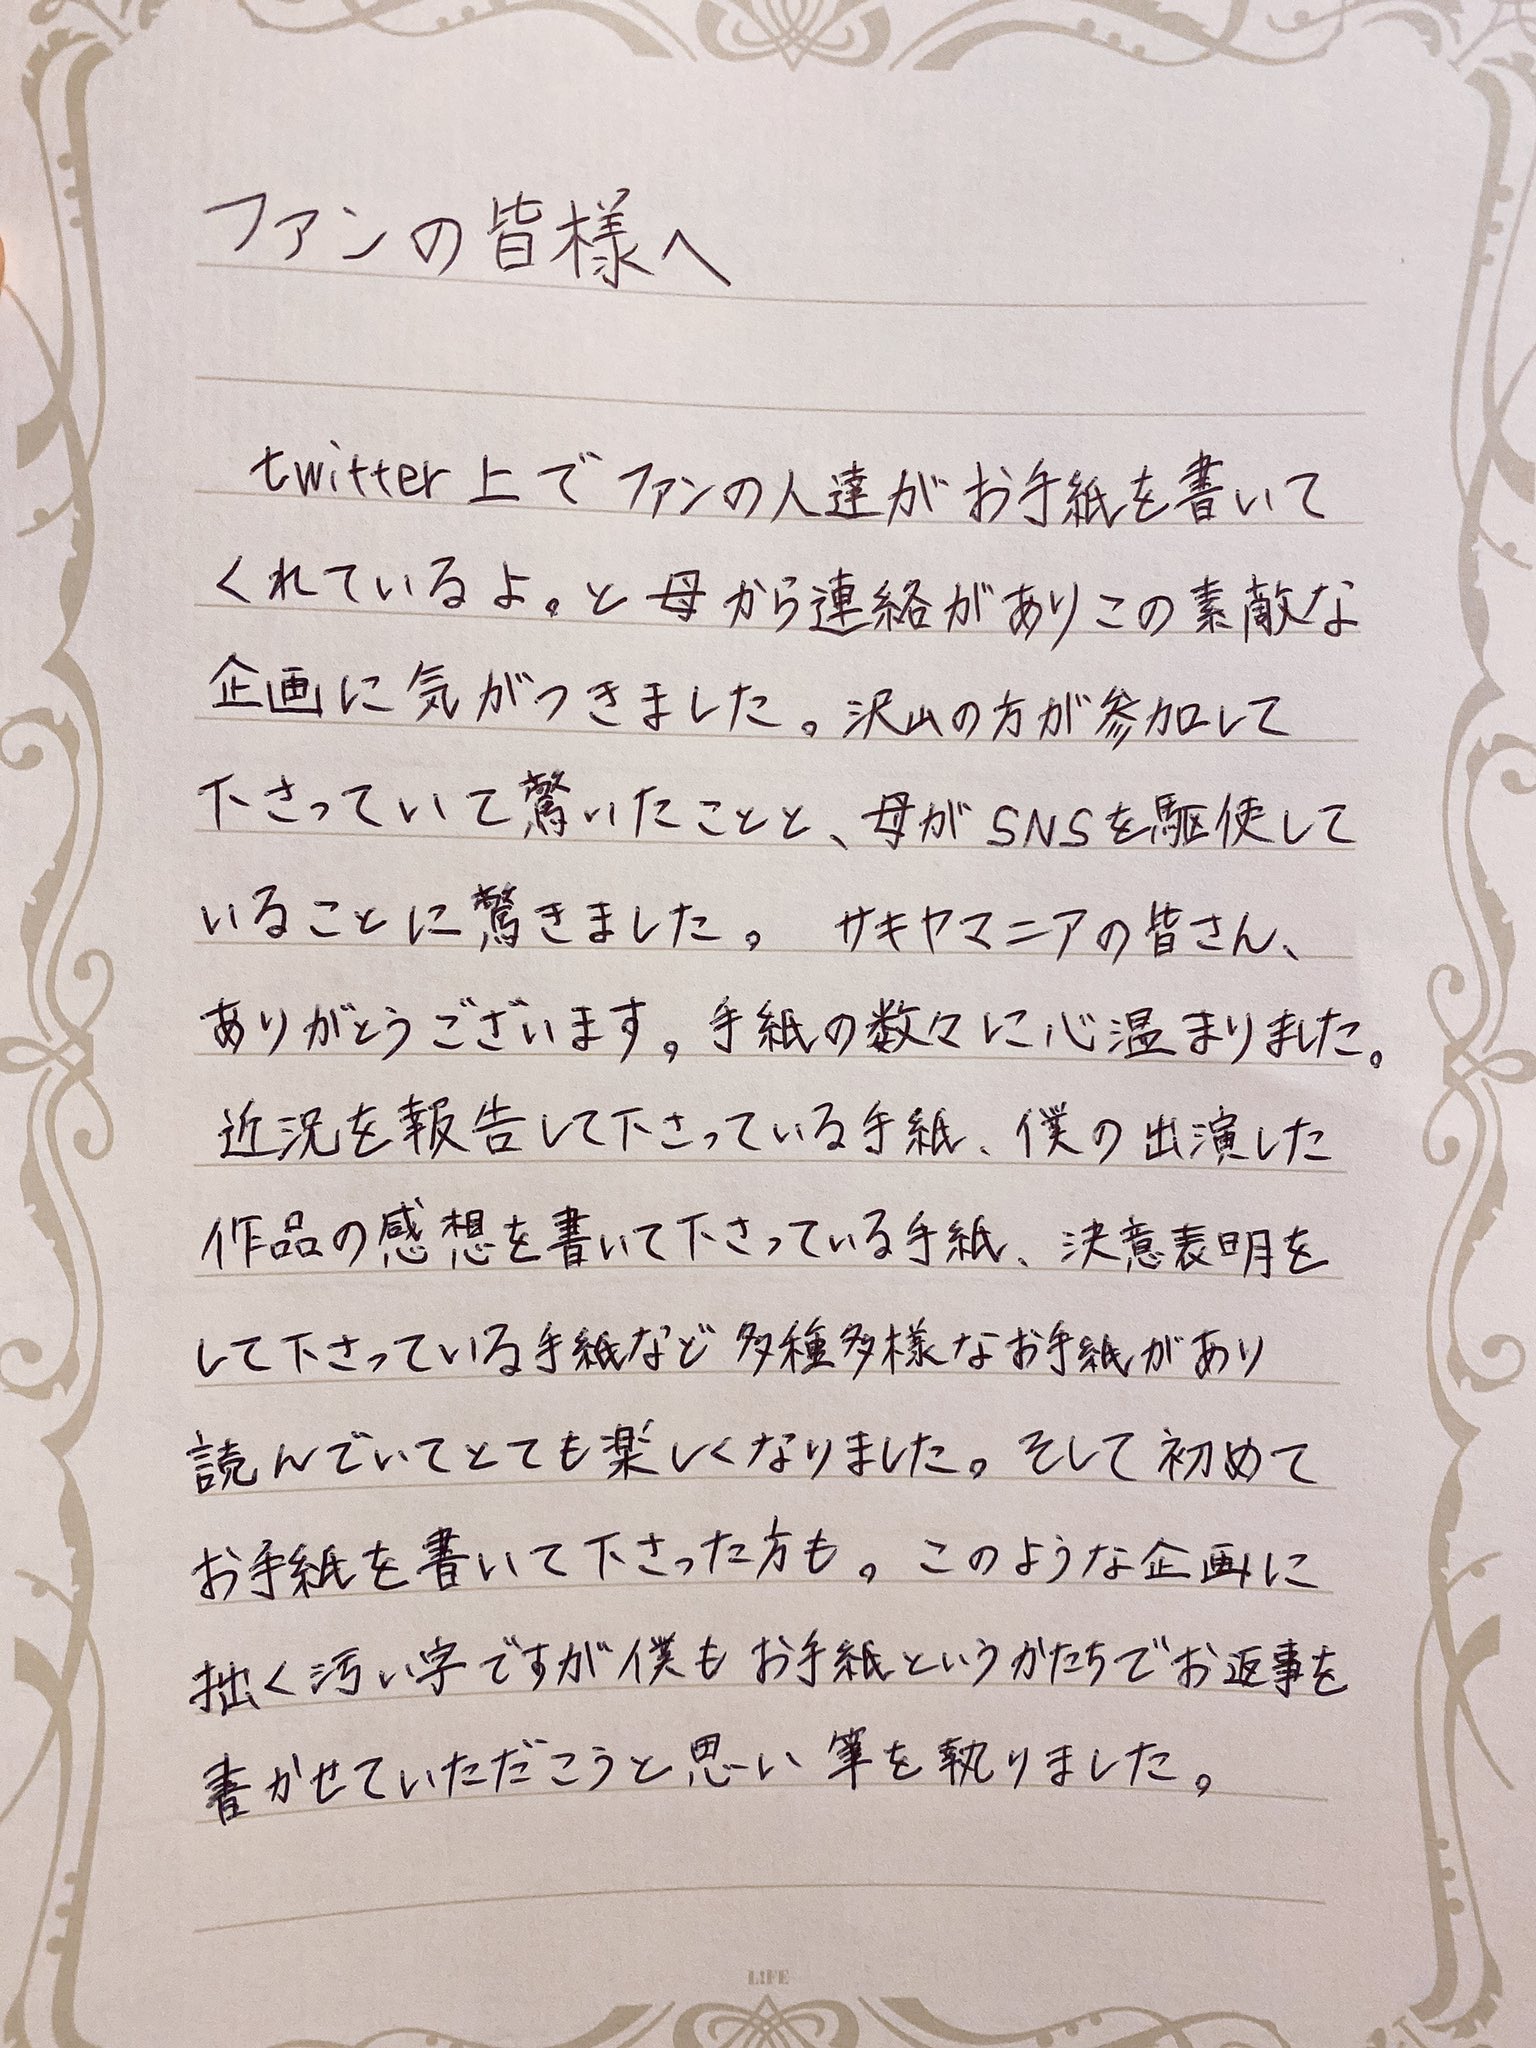 ファンの皆様へ
twitter上でファンの人達がお手紙を書いて
くれているよ。と母から連絡がありこの素敵な
企画に気がつきました。沢山の方が参加して
下さっていて驚いたことと、母がSNSを駆使して
いることに驚きました。 サキヤマニアの皆さん、
ありがとうございます。手紙の数々に心温まりました。
近況を報告して下さっている手紙、僕の出演した
作品の感想を書いて下さっている手紙、決意表明を
して下さっている手紙など多種多様なお手紙があり
読んでいてとても楽しくなりました。そして初めて
お手紙を書いて下さった方も。このような企画に
拙く汚い字ですが僕もお手紙というかたちでお返事を
書かせていただこうと思い筆を執りました。
L!FE